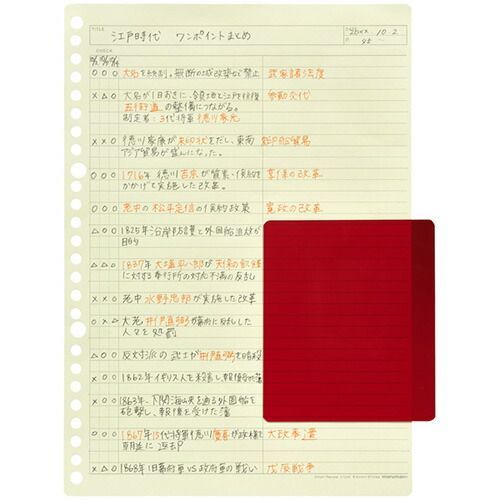 江戸時代 ワンポイントまとめ
10. 2
CHECK
○○○ 大名を統制。無断の城改築など禁止 武家諸法度
×△○ 大名が1年おきに、領地と江戸を往復 参勤交代
五街道の整備につながる。
制定者:3代将軍徳川家光
××○ 徳川家康が朱印状をだし、東南 朱印船貿易
アジア貿易が盛んになった。
○○○ 1716年 徳川吉宗が質素・倹約を 享保の改革
かかげて実施した改革。
○○○ 老中の松平定信の倹約政策 寛政の改革
△○○ 1825年沿岸防
△△○ 1837年 大塩平八郎が天保の
に対する奉行所の対応不満の反乱
××○ 老中 水野忠邦が実施した改革
大老 井伊直弼が幕府に反乱した
人々を処罰
△○○ 反対派の武士が井伊直弼を
×○○ 1862年イギリス人を殺害し、報復
1863年、下関海峡を通る外国船を
砲撃し、報復を受けた藩
○○○ 1867年15代将軍徳川慶喜が政権を 大政奉還
朝廷に返上
×△○ 1868年 旧幕府軍VS政府軍の戦い 戊辰戦争